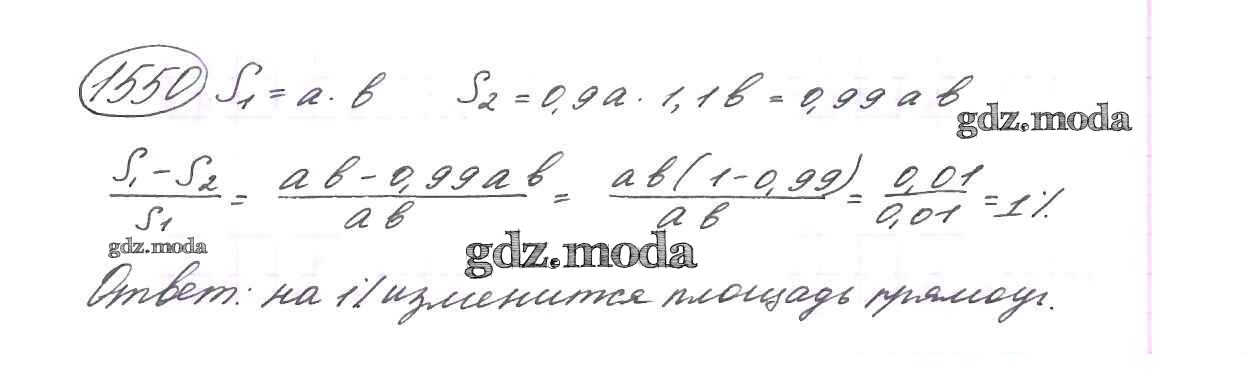 1550 S₁ = a · b S₂ = 0,9a · 1,1b = 0,99ab
gdz.moda
(S₁ - S₂)/S₁ = (ab - 0,99ab)/(ab) = (ab(1-0,99))/(ab) = 0,01/0,01 = 1%
gdz.moda
gdz.moda
Ответ: на 1% изменится площадь прямоуг.